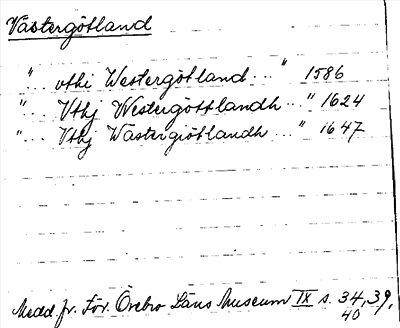 Västergötland
"... vthi Westergötland..." 1586
"... Vthj Westergöttlandh..." 1624
"... Vthj Wästergiötlandh..." 1647
Medd. fr. För. Örebro Läns Museum IX s. 34, 39,
40